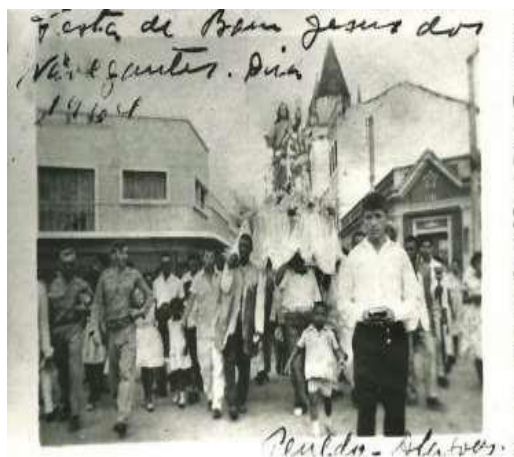 Festa de Bom Jesus dos
Navegantes. Dia
Penedo - Alagoas.